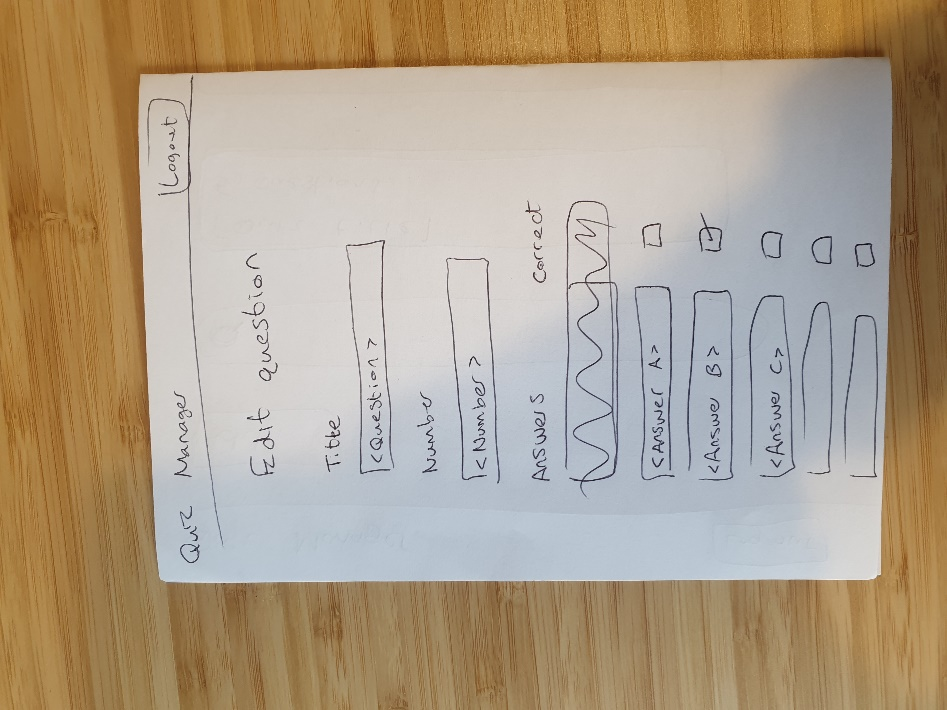 Quiz Manager Logout
Edit question
Title
<Question>
Number
<Number>
Answers Correct
<Answer A>
<Answer B>
<Answer C>